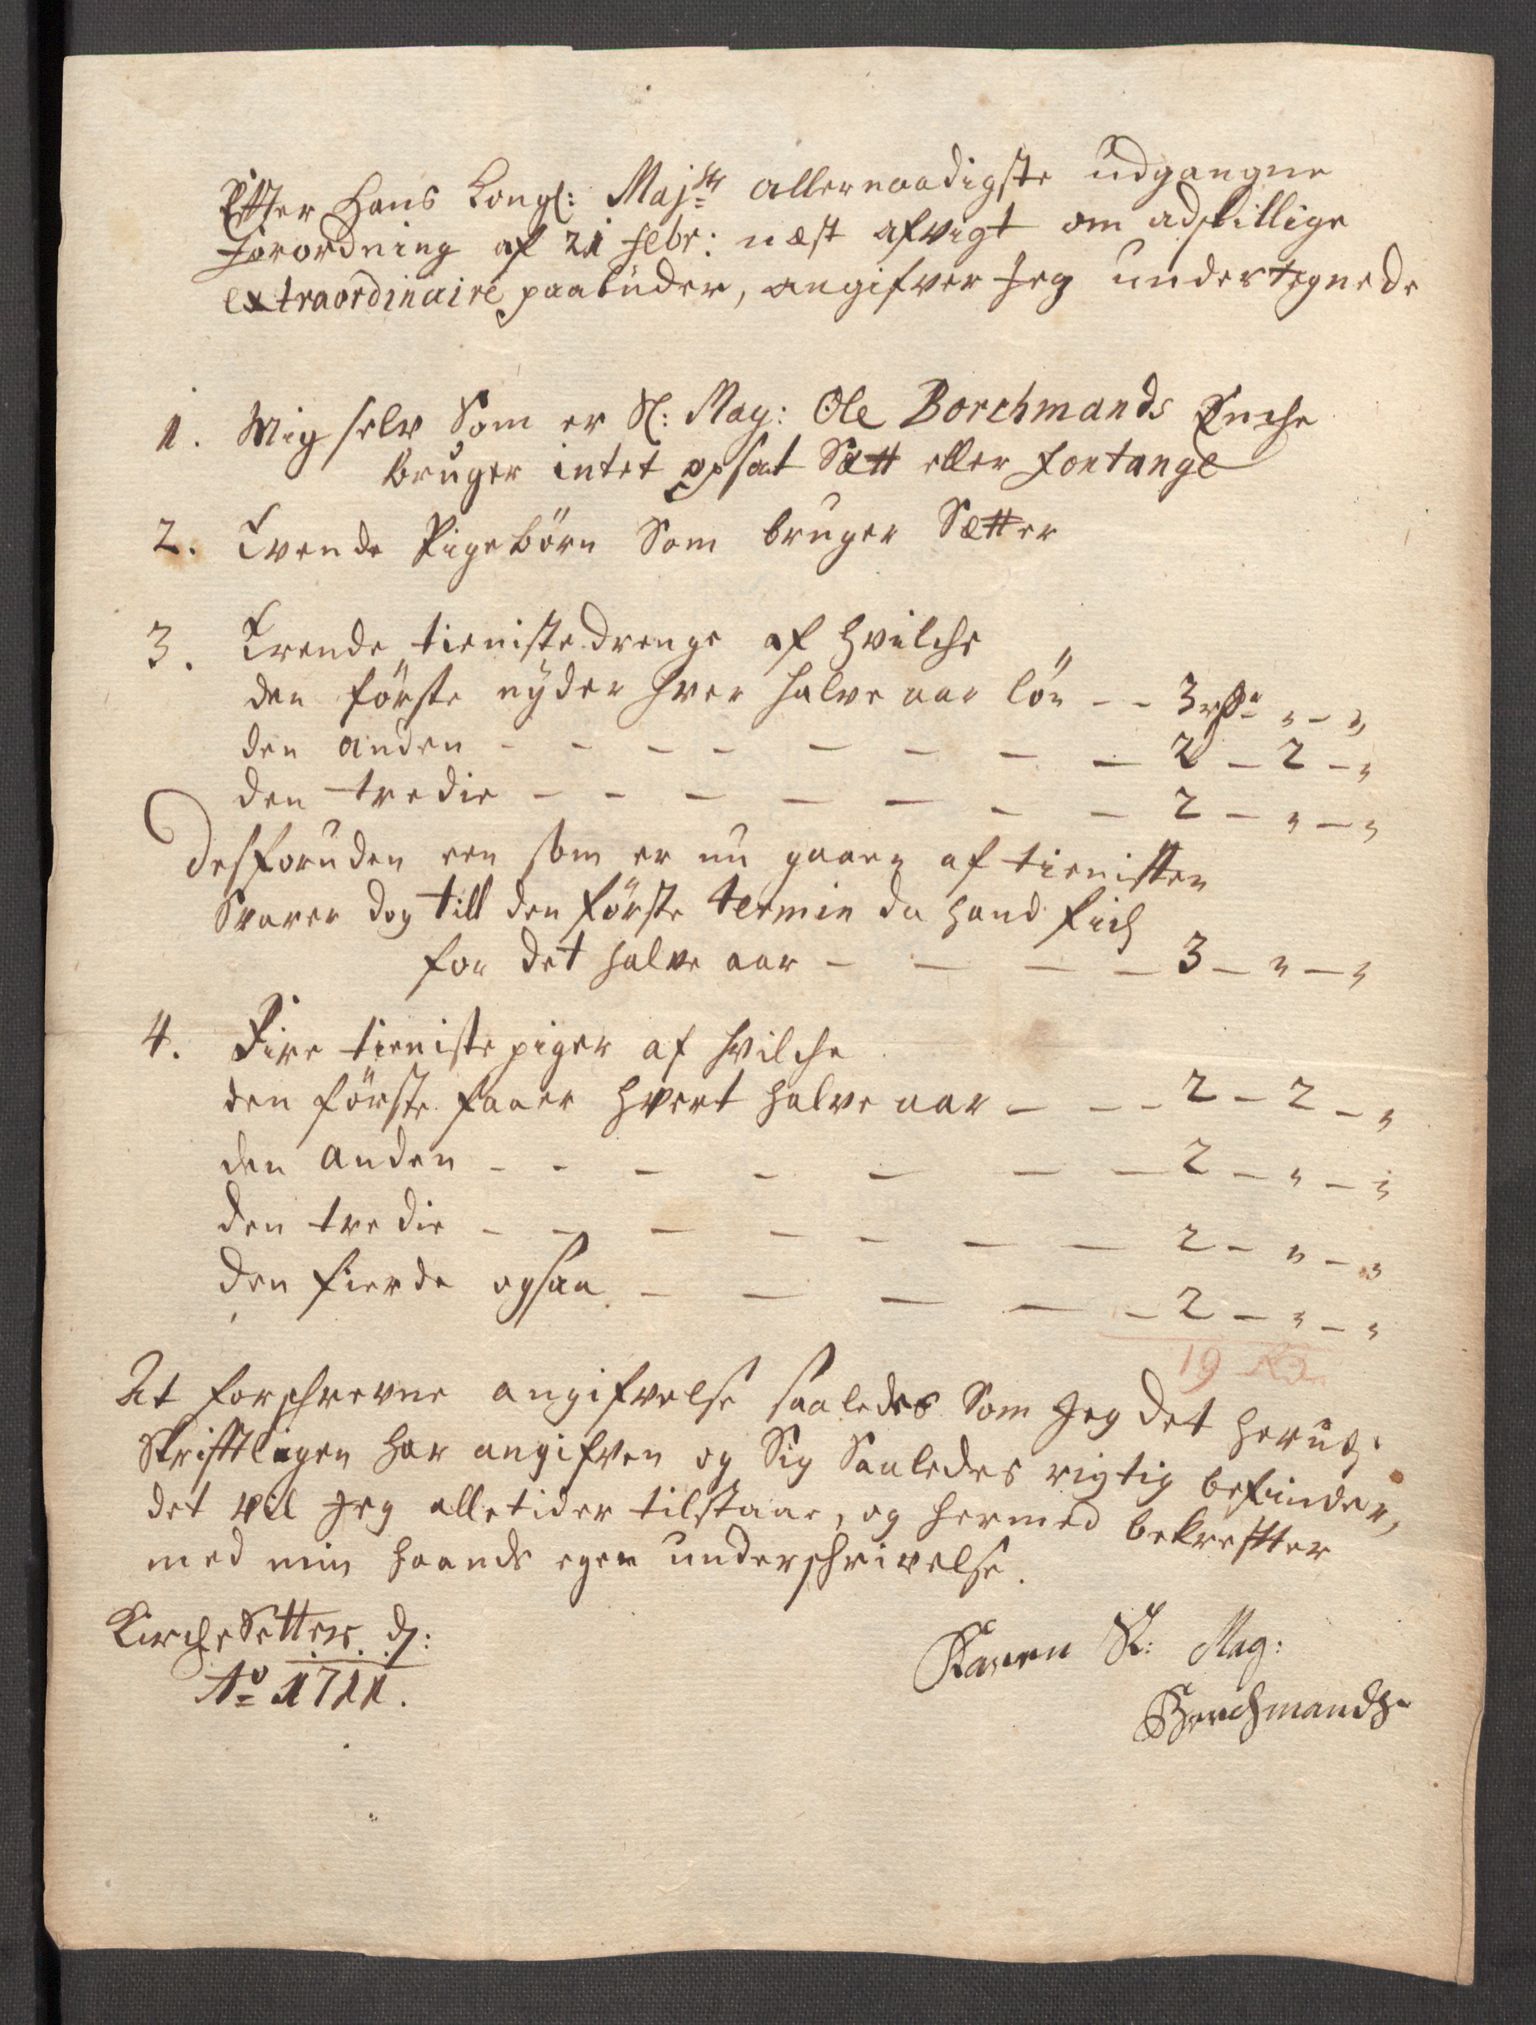 Effter Hans Kongl: Majts allernaadigste udgangne
Forordning af 21 Febr: næst afvigt om adskillige
extraordinaire paabuder, angifver Jeg undertegnede
1. Mig selv som er Sl: Mag: Ole Borchmands Enche
bruger intet opsat Sætt eller fontange
2. Tvende Pigebörn som bruger Sætter
3. Trende tienistedrenge af hvilche
den förste nÿder hver halve aar lön - - 3 rdr „ - „
den anden - - - - - - - - 2 - 2 - „
den tredie - - - - - - - 2 - „ - „
Desforuden een som er nu gaaen af tienisten
Svarer dog till den förste termin da hand fich
for det halve aar - - - - 3 - „ - „
4. Fire tieniste piger af hvilche
den förste faaer hvert halve aar - - - 2 - 2 - „
den anden - - - - - - - 2 - „ - „
den tredie - - - - - - - 2 - „ - „
den fierde ogsaa - - - - - 2 - „ - „
19 Rd
At forschrevne angifvelse saaledes som Jeg det herudj
skrifftligen har angifven og sig saaledes rigtig befinder,
det vil Jeg alletider tilstaae, og hermed bekreffter
med min haands egen underschrivelse.
KircheSetter d:
Ao 1711.
Karen Sl: Mag:
Borchmands